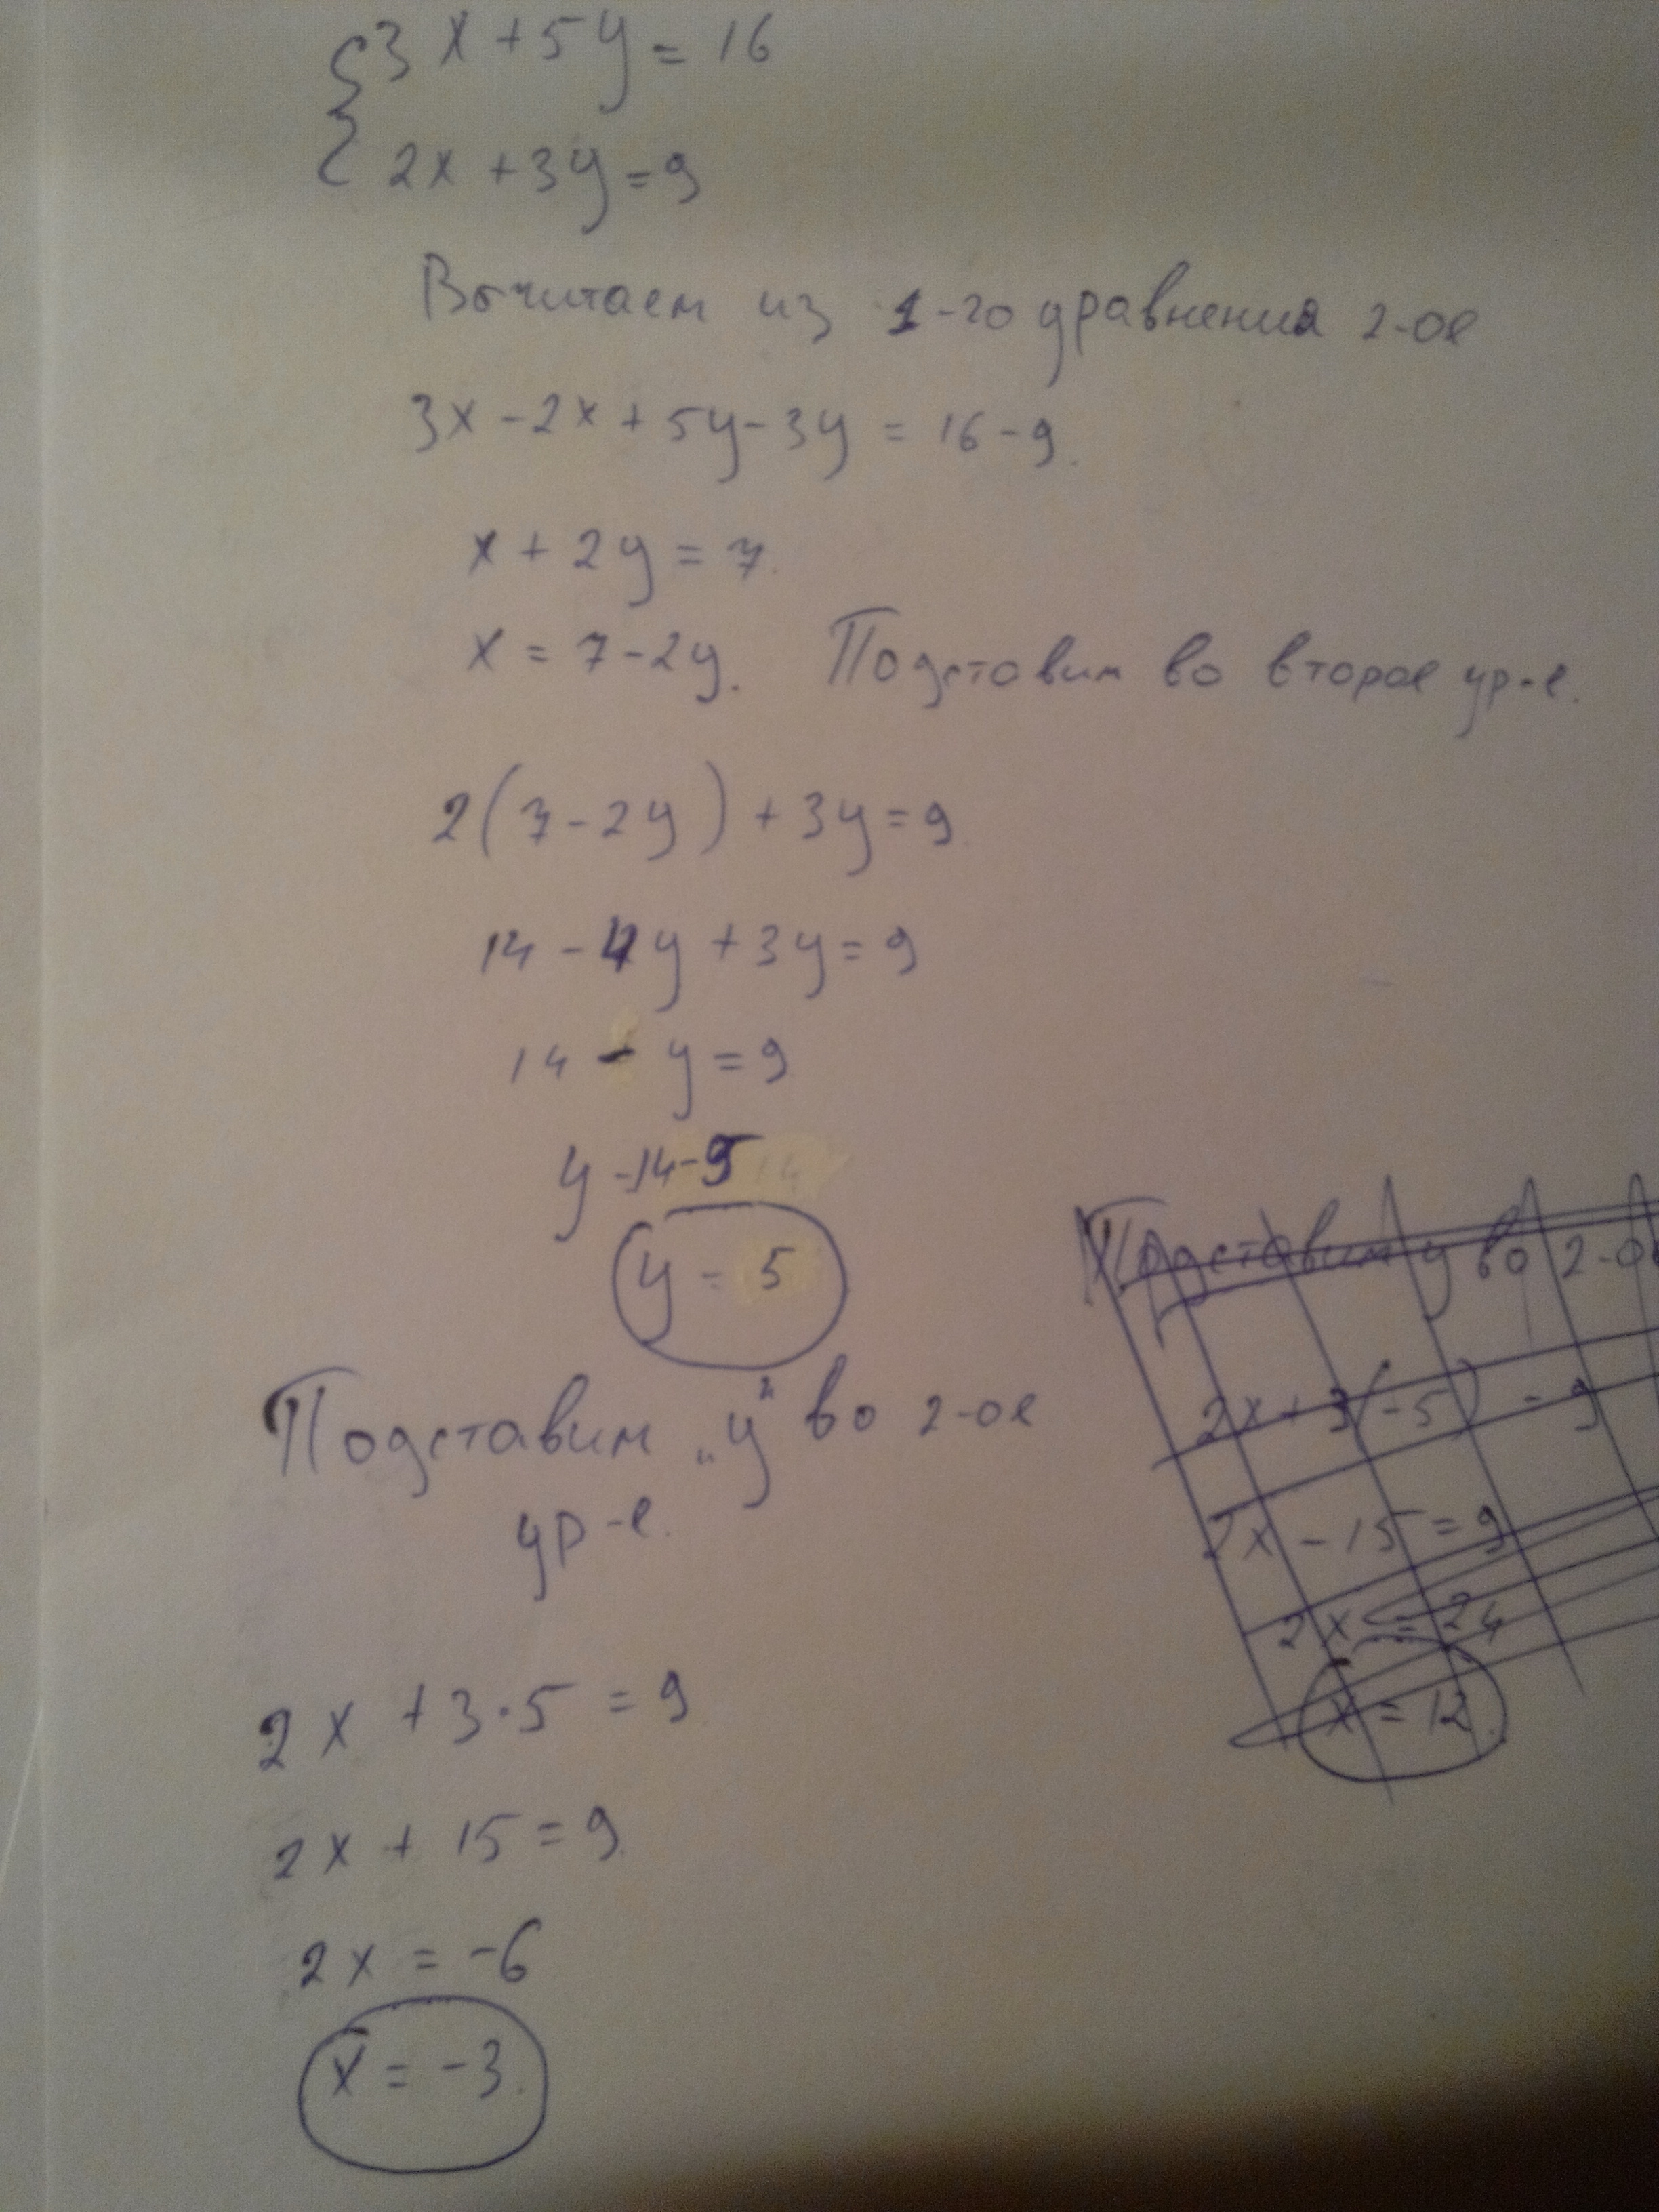 {3x + 5y = 16
2x + 3y = 9
Вычитаем из 1-го уравнения 2-ое
3x - 2x + 5y - 3y = 16 - 9.
x + 2y = 7.
x = 7 - 2y. Подставим во второе ур-е.
2(7 - 2y) + 3y = 9.
14 - 4y + 3y = 9
14 - y = 9
y = 14 - 9
y = 5
Подставим „y" во 2-ое
ур-е.
2x + 3·5 = 9.
2x + 15 = 9.
2x = -6
x = -3.
Подставим y во 2-ое
2x + 3(-5) = 9
2x - 15 = 9
2x = 24
x = 12.